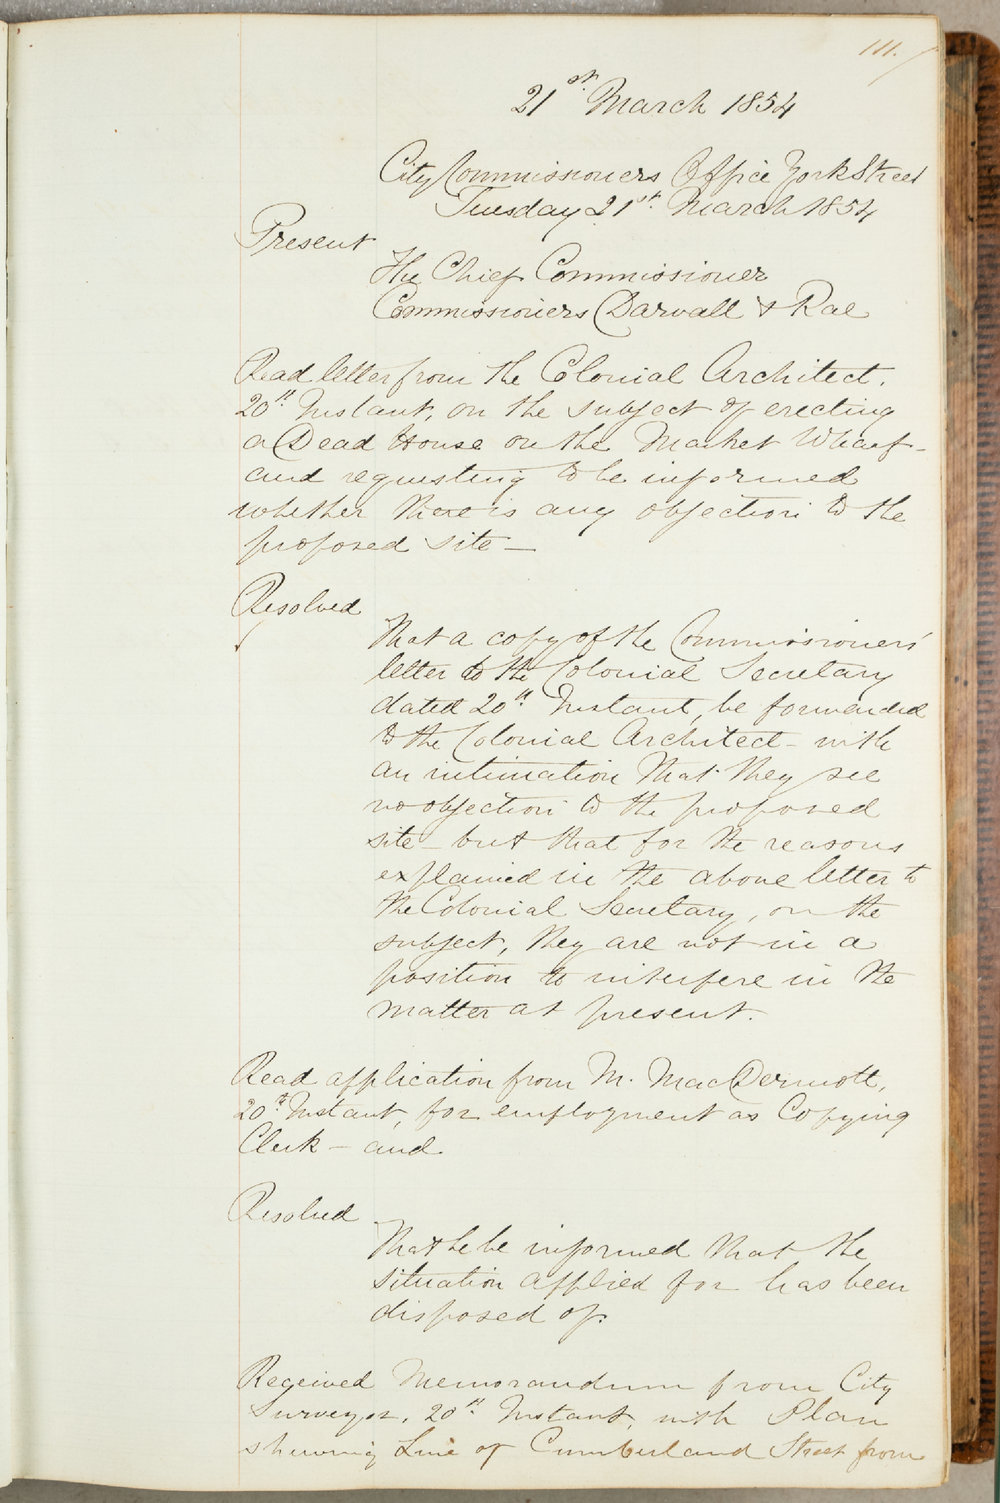 111.
21st. March 1854
City Commissioners Office York Street
Tuesday 21st. March 1854
Present
The Chief Commissioner
Commissioners Darvall & Rae
Read letter from the Colonial Architect.
20th. Instant, on the subject of erecting
a Dead House on the Market Wharf -
and requesting to be informed
whether there is any objection to the
proposed site —
Resolved
That a copy of the Commissioners'
letter to the Colonial Secretary
dated 20th. Instant, be forwarded
to the Colonial Architect - with
an intimation that they see
no objection to the proposed
site - but that for the reasons
explained in the above letter to
the Colonial Secretary, on the
subject, they are not in a
position to interfere in the
matter at present.
Read application from M. MacDermott,
20th. Instant, for employment as Copying
Clerk - and
Resolved
That he be informed that the
situation applied for has been
disposed of.
Received Memorandum from City
Surveyor, 20th. Instant, with Plan
shewing Line of Cumberland Street from